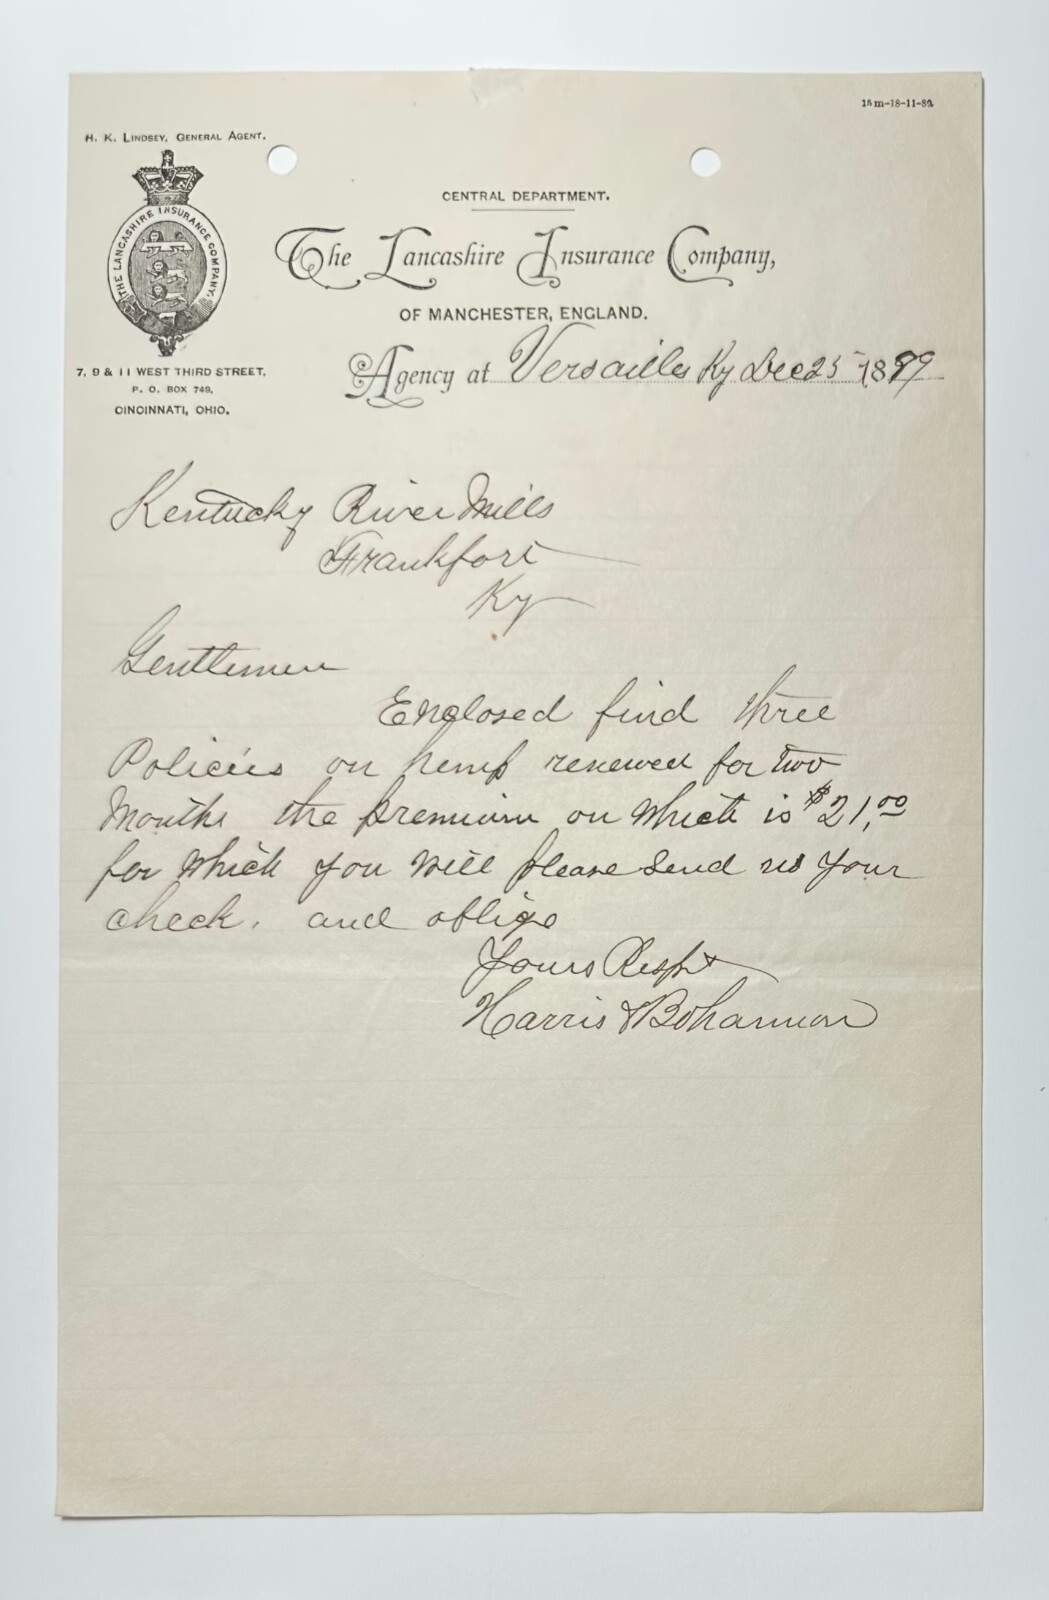 15m-18-11-89
H. K. LINDSEY, GENERAL AGENT.
THE LANCASHIRE INSURANCE COMPANY.
CENTRAL DEPARTMENT.
The Lancashire Insurance Company,
OF MANCHESTER, ENGLAND.
7, 9 & 11 WEST THIRD STREET,
P. O. BOX 749,
CINCINNATI, OHIO.
Agency at Versailles Ky Dec 25 1889
Kentucky River Mills
Frankfort
Ky
Gentlemen
Enclosed find three
Policies on hemp renewed for two
Months the premium on which is $21,00
for which you will please send us your
check. and oblige
Yours Respt
Harris & Bohannon